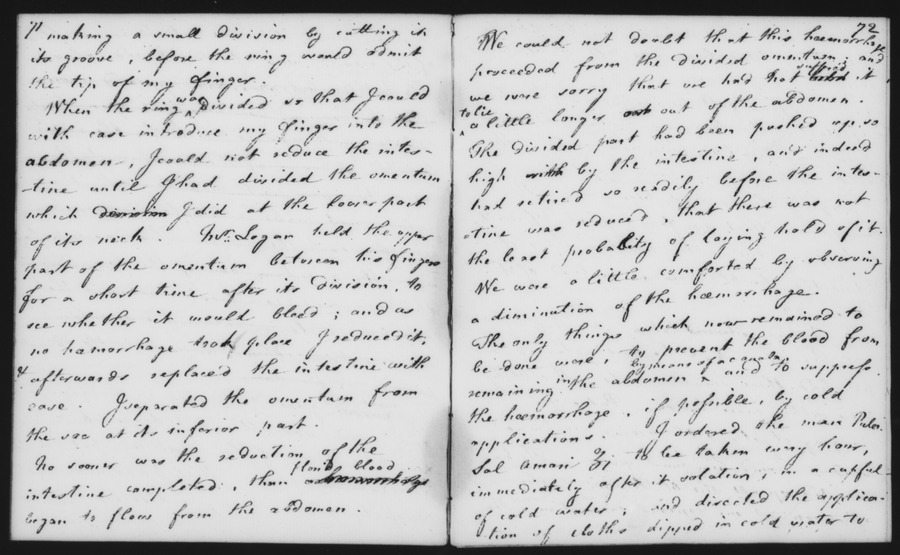 71
making a small division by cutting it
its groove, before the ring would admit
the tip of my finger.
When the ring was divided so that I could
with ease introduce my finger into the
abdomen, I could not reduce the intes-
-tine until I had divided the omentum
which division I did at the lower part
of its neck. Mr. Logan held the upper
part of the omentum between his fingers
for a short time after its division, to
see whether it would bleed; and as
no hæmorrhage took place I reduced it,
& afterwards replaced the intestine with
ease. I separated the omentum from
the sac at its inferior part.
No sooner was the reduction of the
intestine completed, than a fluid blood
began to flow from the abdomen.
72
We could not doubt that this hæmorrhage
proceeded from the divided omentum; and
we were sorry that we had not suffered it
to lie a little longer out of the abdomen.
The divided part had been pushed up so
high with by the intestine, and indeed
had retired so readily before the intes-
-tine was reduced, that there was not
the least probability of laying hold of it.
We were a little comforted by observing
a diminution of the hæmorrhage.
The only things which now remained to
be done were, to prevent the blood from
remaining in the abdomen by means of a and to suppress
the hæmorrhage, if possible, by cold
applications. I ordered the man Pulv.
Sal Amon ʒi to be taken every hour,
immediately after it solution, in a cupful
of cold water; and directed the applica-
tion of cloths dipped in cold water to